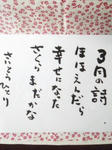 3月の詩
ほほえんだら
幸せになった
さくらまだかな
さいとうひとり